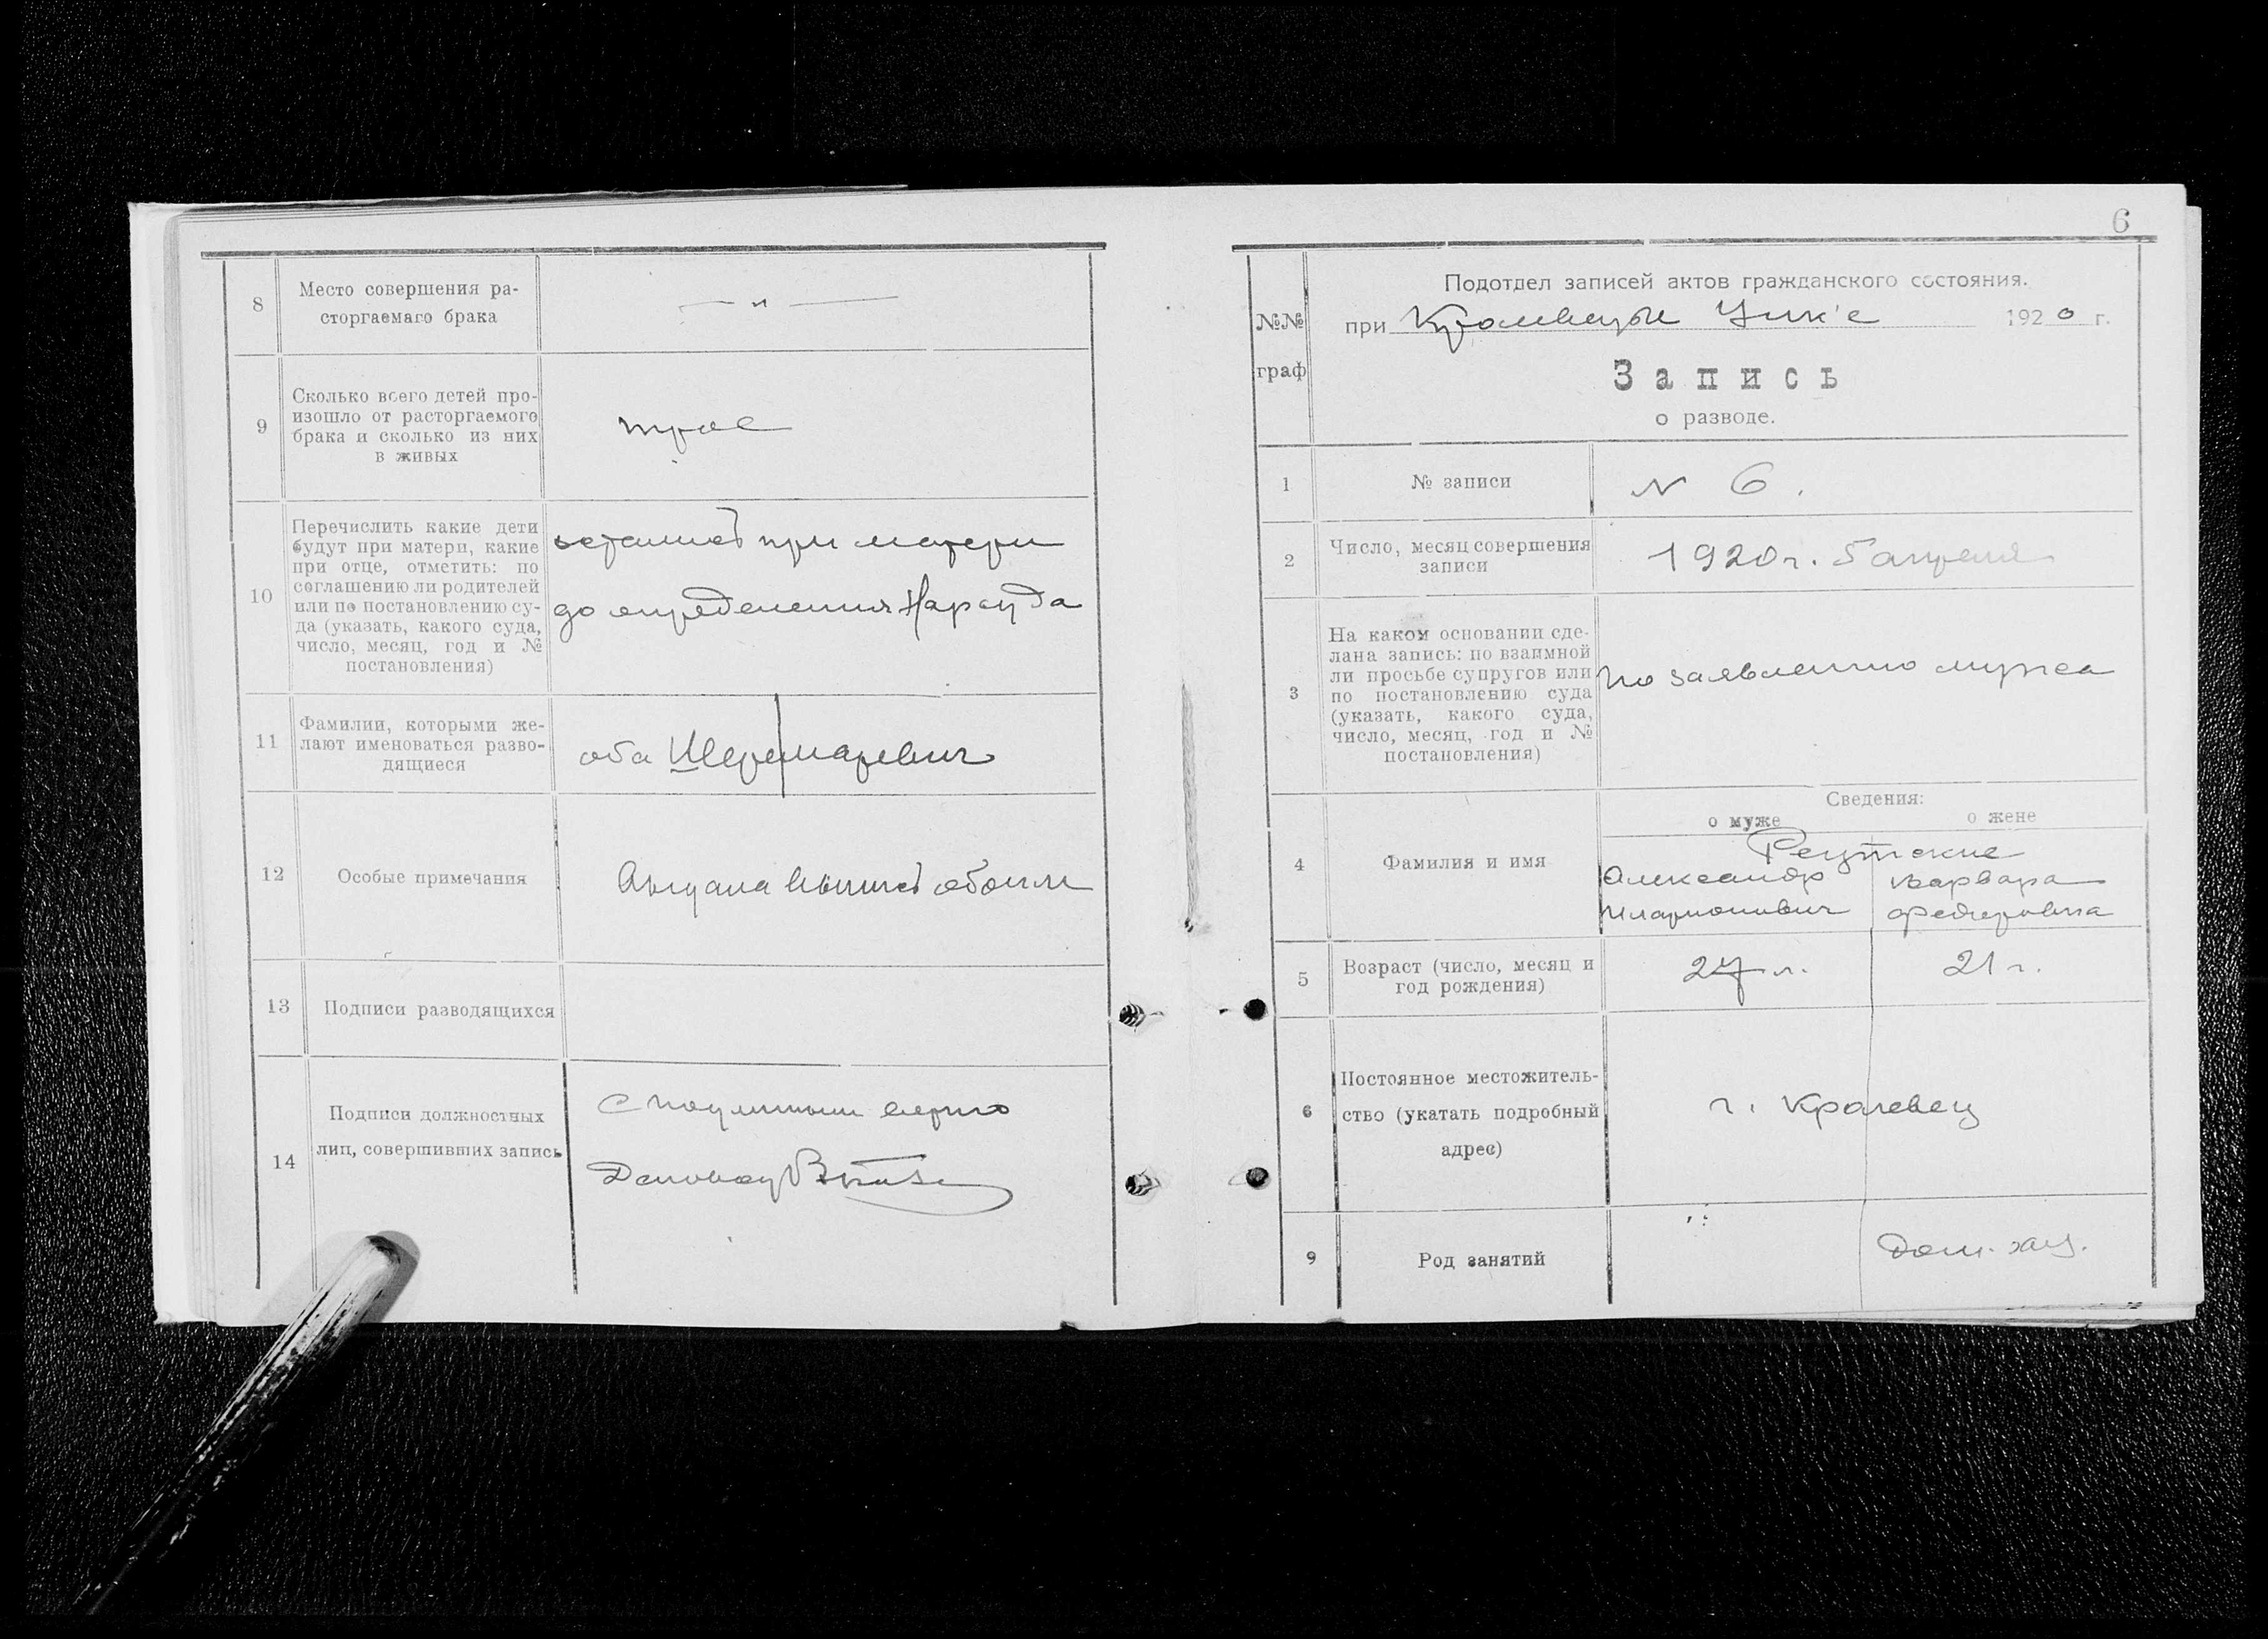 8
Место совершения ра-
сторгаемаго брака
— „ —
9
Сколько всего детей про-
изошло от расторгаемого
брака и сколько из них
в живых
трое
10
Перечислить какие дети
будут при матери, какие
при отце, отметить: по
соглашению ли родителей
или по постановлению су-
да (указать, какого суда,
число, месяц, год и №
постановления)
остались при матери
до определения Нарсуда
11
Фамилии, которыми же-
лают именоваться разво-
дящиеся
оба Шереметевич
12
Особые примечания
обоим
13
Подписи разводящихся
14
Подписи должностных
лиц, совершивших запись
С подлинным верно
6
№№
граф
Подотдел записей актов гражданского состояния.
при Кролевецком 1920 г.
Запись
о разводе.
1
№ записи
N 6.
2
Число, месяц совершения
записи
1920 г. 5 апреля
3
На каком основании сде-
лана запись: по взаимной
ли просьбе супругов или
по постановлению суда
(указать, какого суда,
число, месяц, год и №
постановления)
по заявлению мужа
Сведения:
о муже
о жене
4
Фамилия и имя
Реутские
Александр
Иларионович
Варвара
Федоровна
5
Возраст (число, месяц и
год рождения)
27 л.
21 г.
6
Постоянное местожитель-
ство (укатать подробный
адрес)
г. Кролевец
9
Род занятий
Дом. хоз.